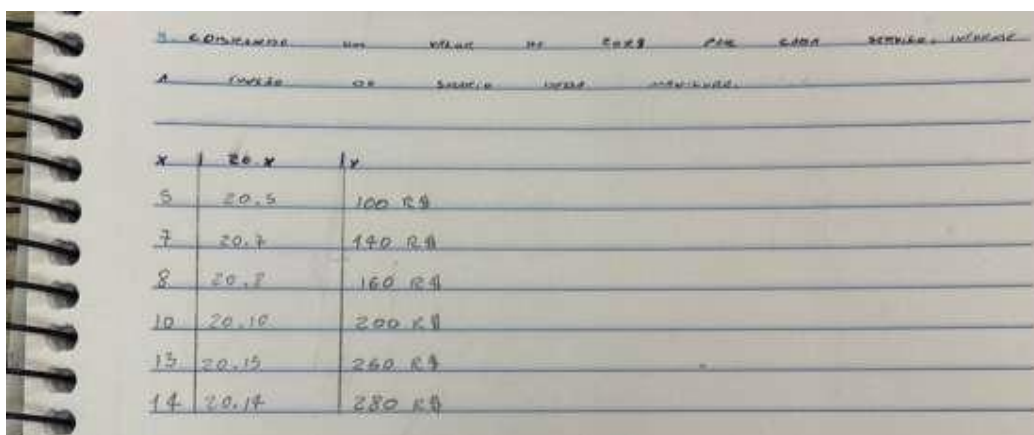 COBRANDO UM VALOR DE 20R$ POR CADA SERVIÇO, INFORME
A FUNÇÃO DO
x | 20.x | y
5 | 20.5 | 100 R$
7 | 20.7 | 140 R$
8 | 20.8 | 160 R$
10 | 20.10 | 200 R$
13 | 20.13 | 260 R$
14 | 20.14 | 280 R$